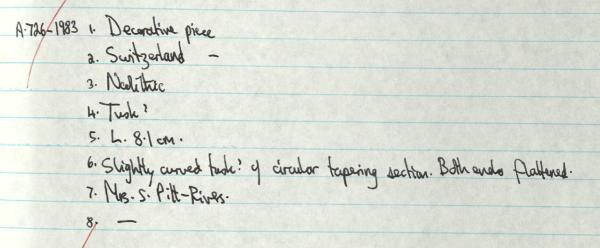 A.726-1983 1. Decorative piece
2. Switzerland –
3. Neolithic
4. Tusk?
5. L. 8.1 cm.
6. Slightly curved tusk? of circular tapering section. Both ends flattened.
7. Mrs. S. Pitt-Rivers.
8. —